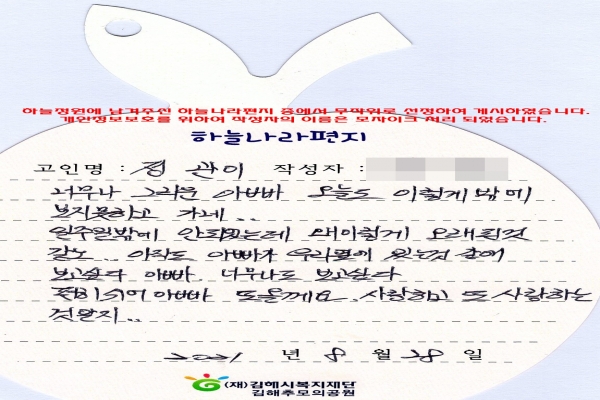 하늘정원에 남겨주신 하늘나라편지 중에서 무작위로 선정하여 게시하였습니다.
개인정보보호를 위하여 작성자의 이름은 모자이크 처리 되었습니다.
하늘나라편지
고인명 : 정관이 작성자 :
너무나 그리운 아빠빠 오늘도 이렇게 밖에
보지못하고 가네..
일주일밖에 안되었는데 왜이렇게 오래된것
같노.. 아직도 아빠빠가 우리곁에 있는것 같에
보고싶다 아빠빠 너무나도 보고싶다
편히쉬어 아빠빠 또올께요. 사랑하고 또 사랑하는
것알지..
2021 년 8 월 28 일
(재)김해시복지재단
김해추모의공원